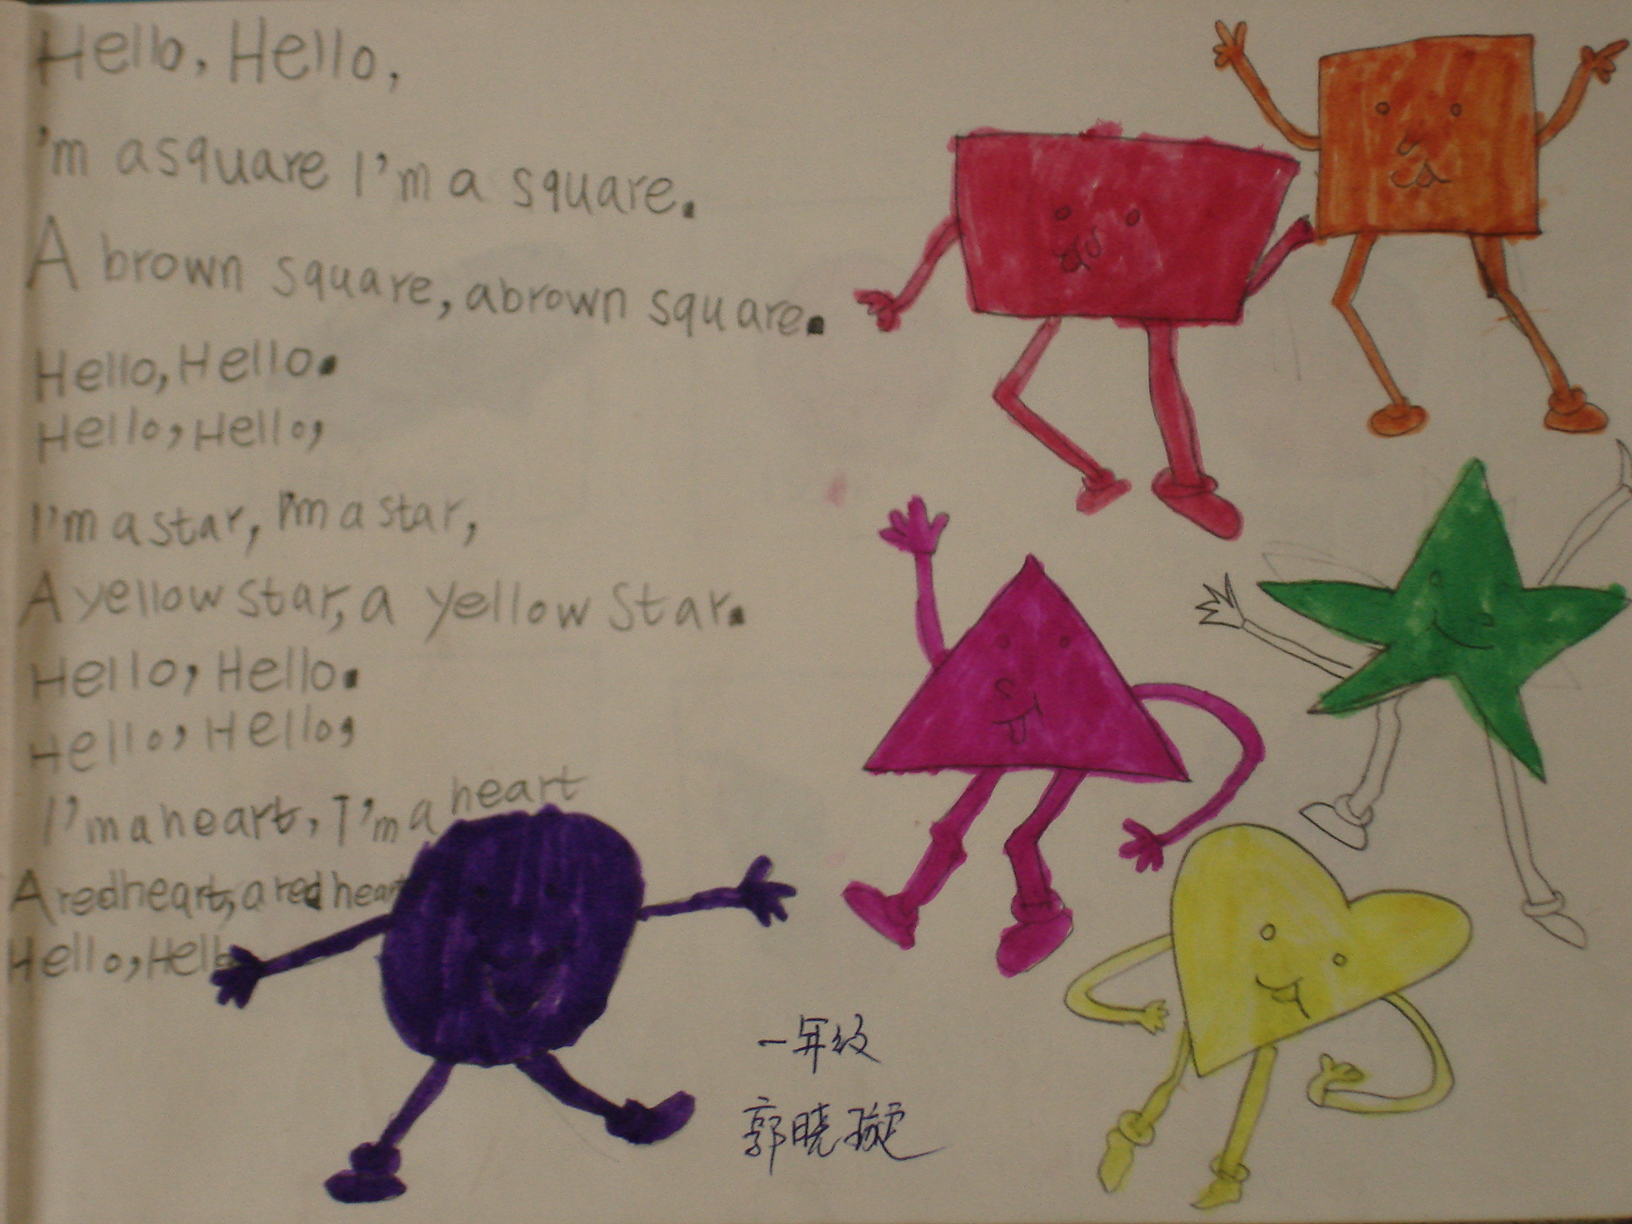 Hello, Hello,
I'm a square I'm a square.
A brown square, a brown square.
Hello, Hello.
Hello, Hello,
I'm a star, I'm a star,
A yellow star, a yellow star.
Hello, Hello.
Hello, Hello,
I'm a heart, I'm a heart
A red heart, a red heart
Hello, Hello
一年级
郭晓璇